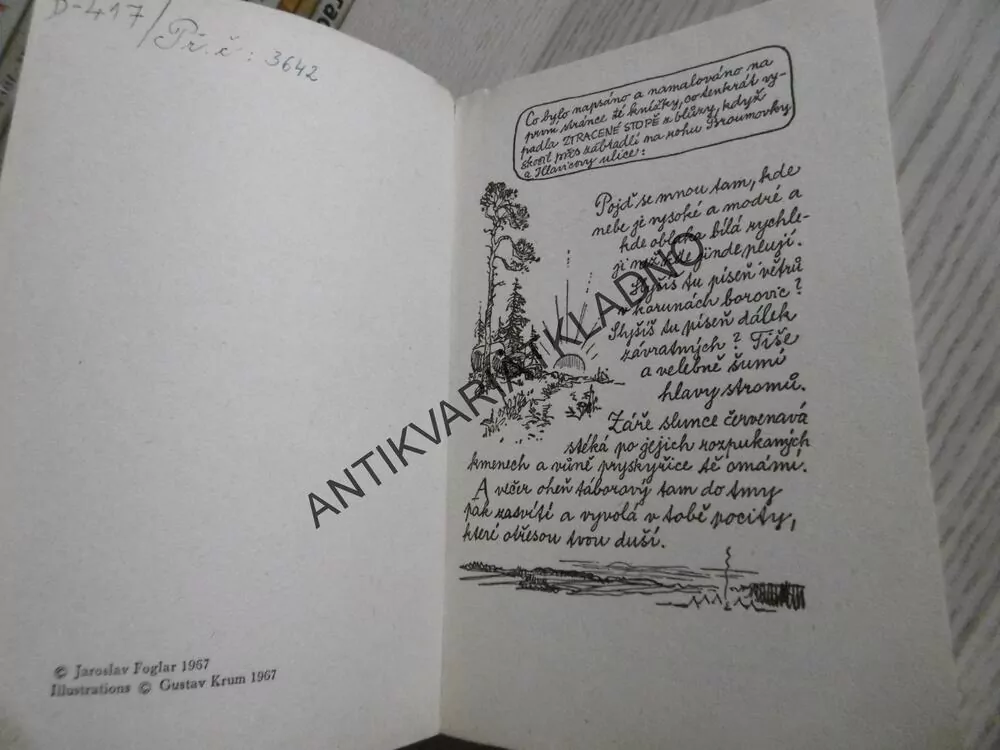 D-417/Př.č: 3642
© Jaroslav Foglar 1967
Illustrations © Gustav Krum 1967
Co bylo napsáno a namalováno na
první stránce té knížky, co tenkrát vy-
padla ZTRACENÉ STOPĚ z blůzy, když
skočil přes zábradlí na rohu Broumovky
a Hlavicovy ulice:
Pojď se mnou tam, kde
nebe je vysoké a modré a
kde oblaka bílá rychle-
ji než kde jinde plují.
Slyšíš tu píseň větrů
v korunách borovic?
Slyšíš tu píseň dálek
závratných? Tiše
a velebně šumí
hlavy stromů.
Záře slunce červenavá
stéká po jejich rozpukaných
kmenech a vůně pryskyřice tě omámí.
A večer oheň táborový tam do tmy
pak zasvítí a vyvolá v tobě pocity,
které otřesou tvou duší.
ANTIKVARIÁTKLADNO